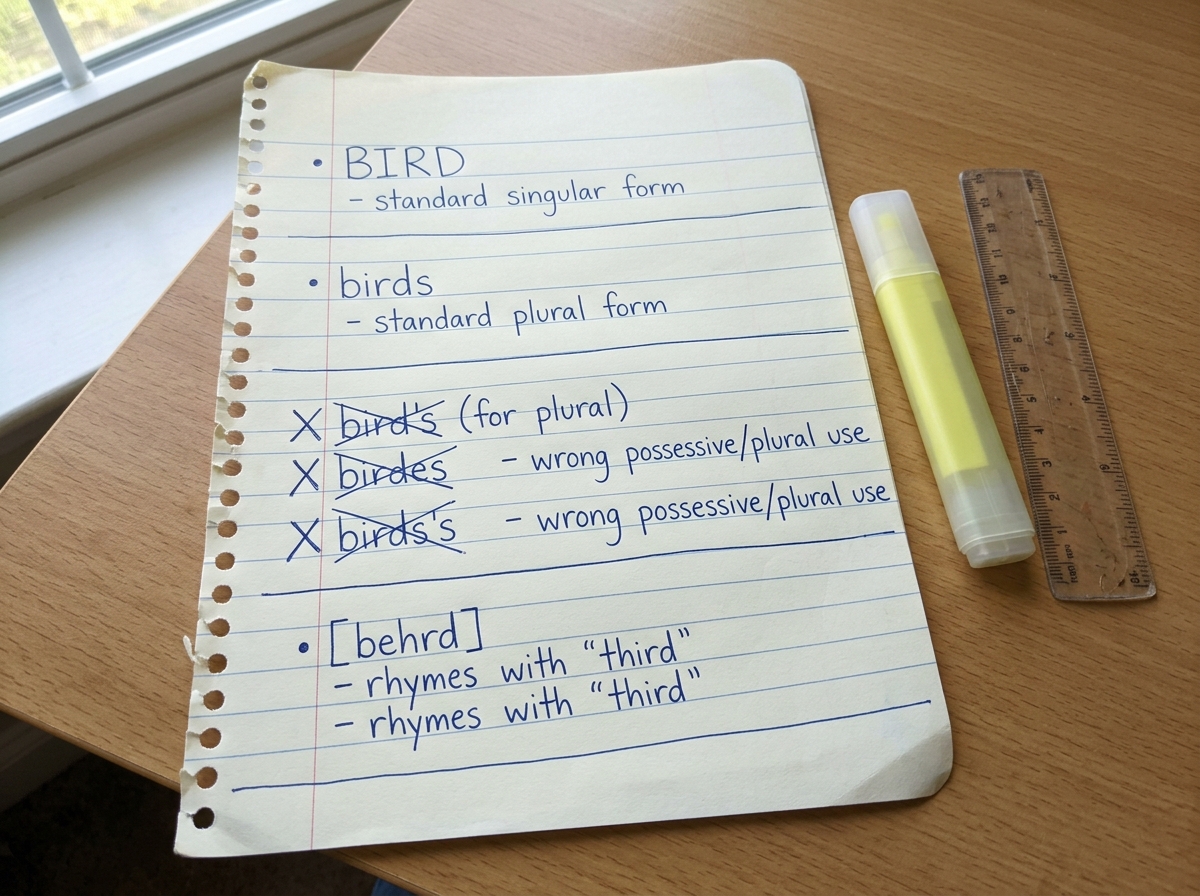 • BIRD
- standard singular form
• birds
- standard plural form
X bird's (for plural)
X birdes - wrong possessive/plural use
X birds's - wrong possessive/plural use
• [behrd]
- rhymes with “third”
- rhymes with “third”